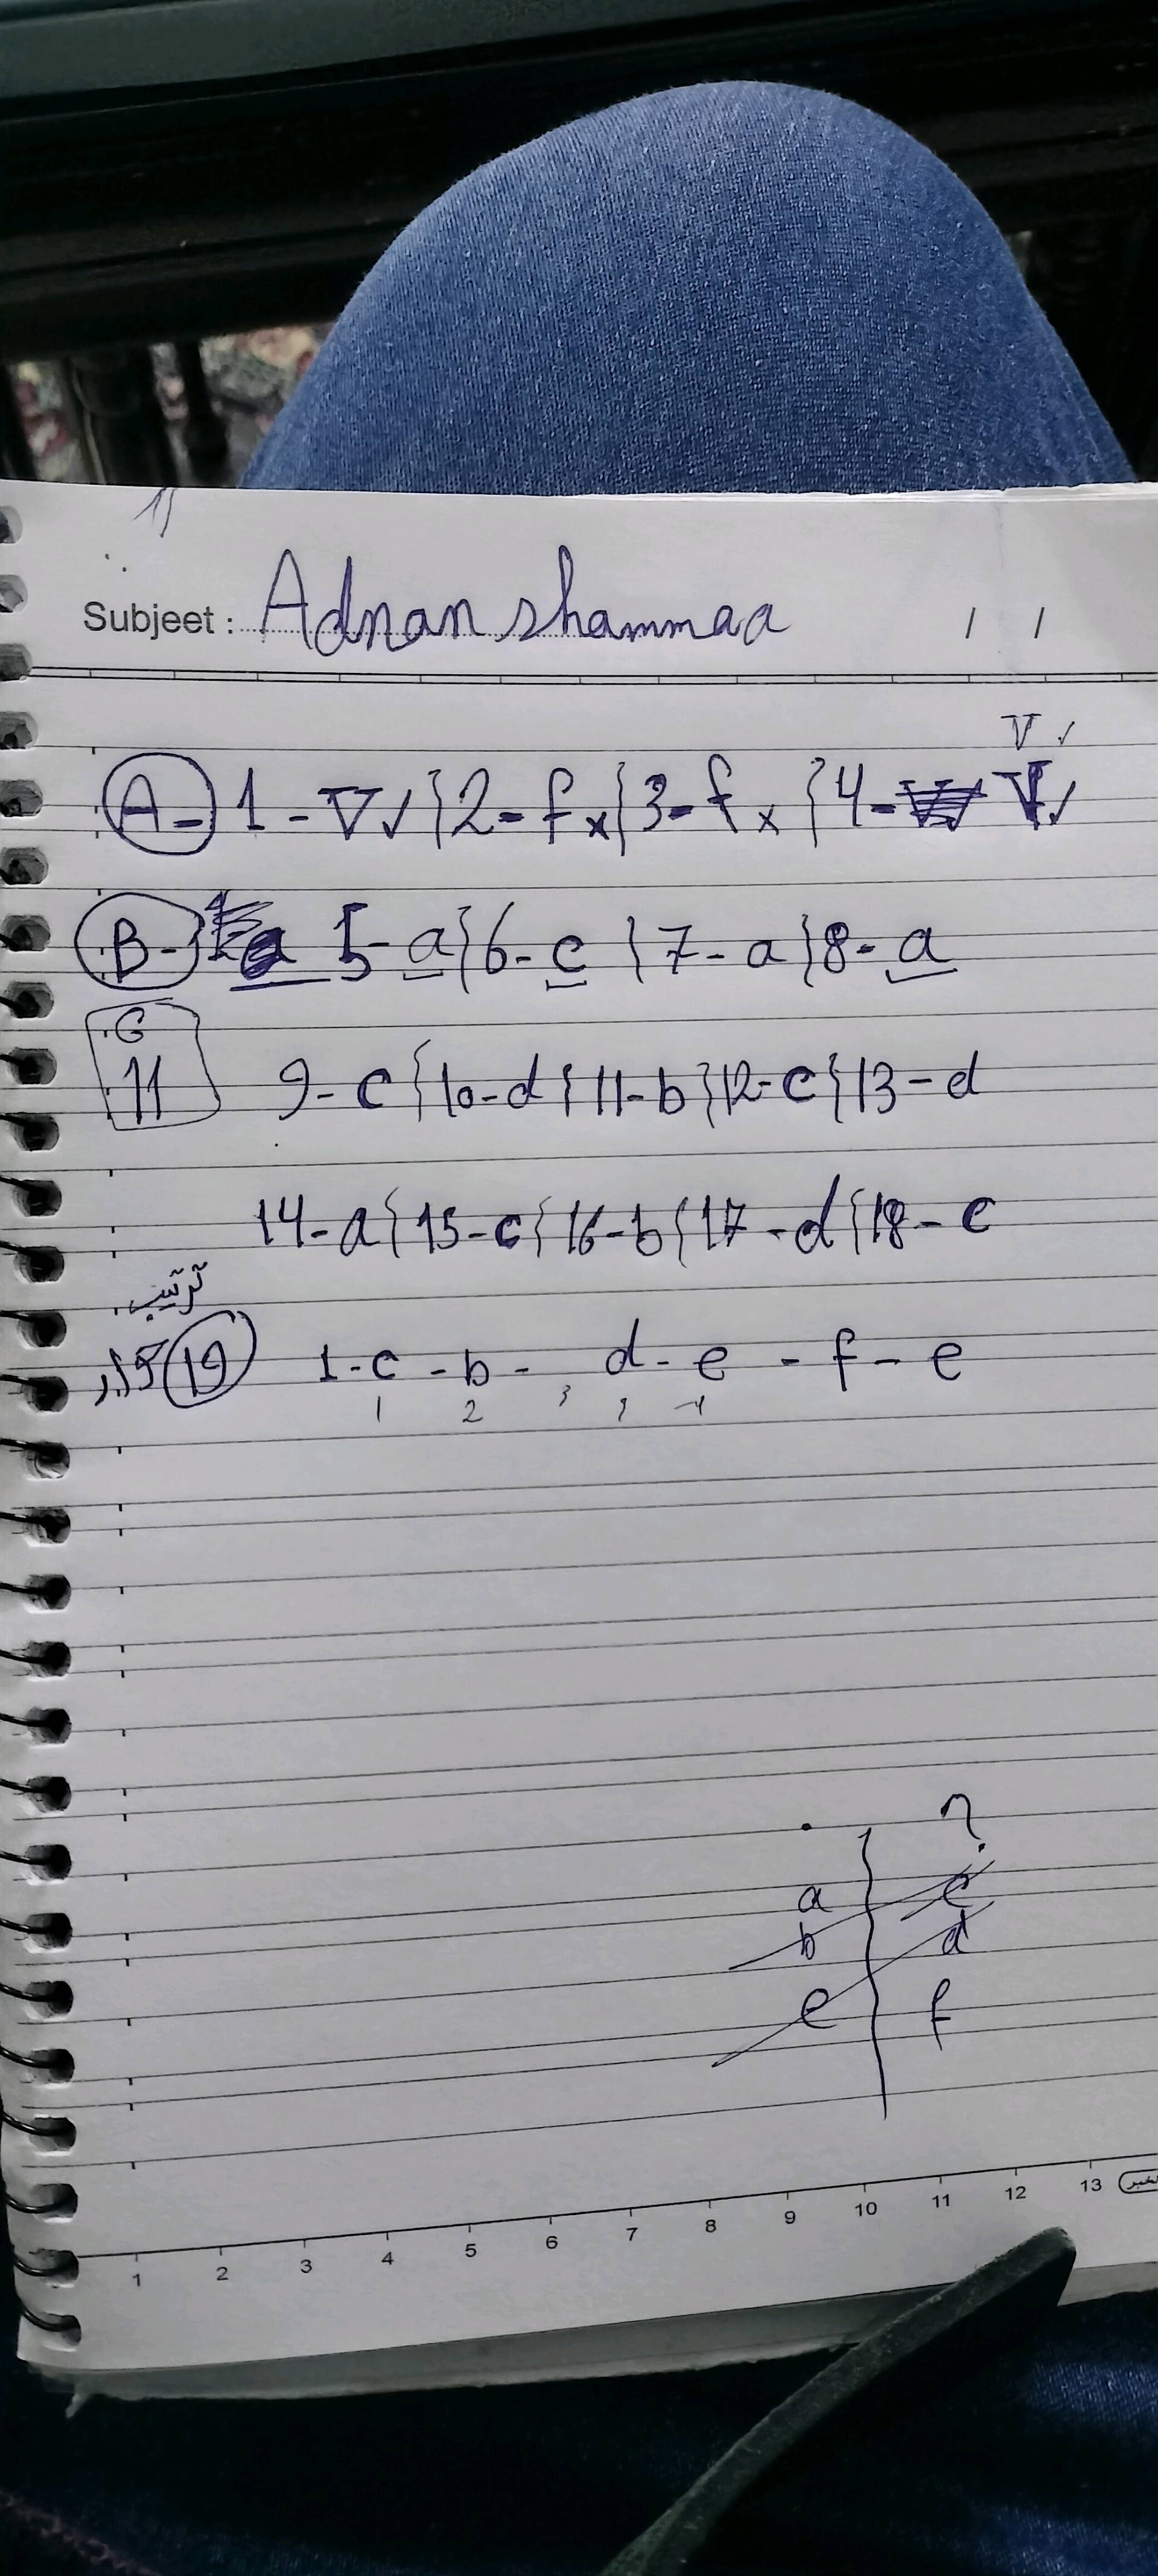 Subjeet : Adnan shammaa / /
V ✓
A- 1 - V ✓ } 2 - f x { 3 - f x } 4 - V ✓
B- 5 - a } 6 - c } 7 - a } 8 - a
G
11 9 - c { 10 - d { 11 - b } 12 - c { 13 - d
14 - a { 15 - c { 16 - b { 17 - d { 18 - c
ترتيب
19 1 - c - b - d - e - f - e
1 2 3 3 4
?
a c
b d
e f
1 2 3 4 5 6 7 8 9 10 11 12 13